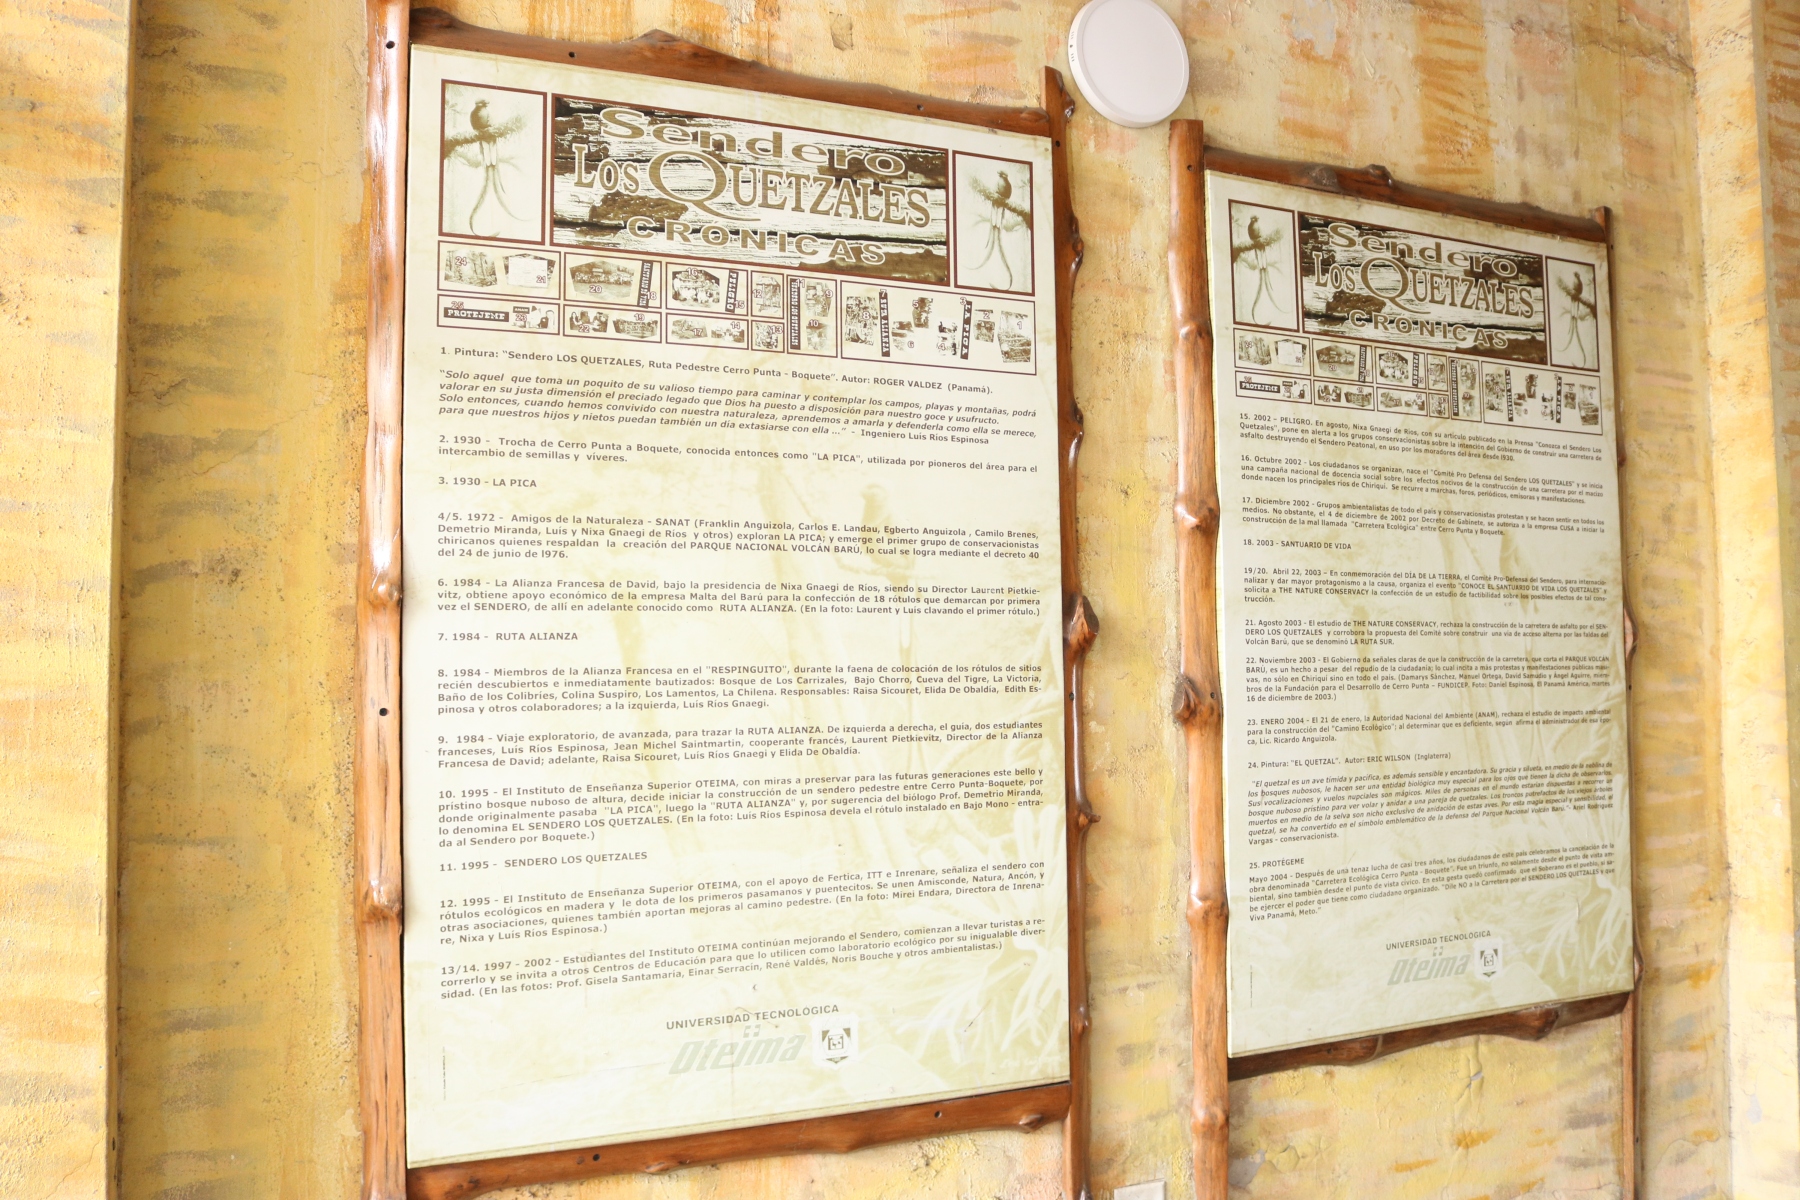 Sendero
LOS QUETZALES
CRÓNICAS
24
21
20
18
16
PELIGRO
15
12
11
9
8
7
RUTA ALIANZA
5
3
LA PICA
2
1
25
PROTEJEME
23
22
19
17
14
13
10
6
4
1. Pintura: "Sendero LOS QUETZALES, Ruta Pedestre Cerro Punta - Boquete". Autor: ROGER VALDEZ (Panamá).
"Solo aquel que toma un poquito de su valioso tiempo para caminar y contemplar los campos, playas y montañas, podrá
valorar en su justa dimensión el preciado legado que Dios ha puesto a disposición para nuestro goce y usufructo.
Solo entonces, cuando hemos convivido con nuestra naturaleza, aprendemos a amarla y defenderla como ella se merece,
para que nuestros hijos y nietos puedan también un día extasiarse con ella ..." - Ingeniero Luis Ríos Espinosa
2. 1930 - Trocha de Cerro Punta a Boquete, conocida entonces como "LA PICA", utilizada por pioneros del área para el
intercambio de semillas y víveres.
3. 1930 - LA PICA
4/5. 1972 - Amigos de la Naturaleza - SANAT (Franklin Anguizola, Carlos E. Landau, Egberto Anguizola , Camilo Brenes,
Demetrio Miranda, Luis y Nixa Gnaegi de Ríos y otros) exploran LA PICA; y emerge el primer grupo de conservacionistas
chiricanos quienes respaldan la creación del PARQUE NACIONAL VOLCÁN BARÚ, lo cual se logra mediante el decreto 40
del 24 de junio de l976.
6. 1984 - La Alianza Francesa de David, bajo la presidencia de Nixa Gnaegi de Ríos, siendo su Director Laurent Pietkie-
vitz, obtiene apoyo económico de la empresa Malta del Barú para la confección de 18 rótulos que demarcan por primera
vez el SENDERO, de allí en adelante conocido como RUTA ALIANZA. (En la foto: Laurent y Luis clavando el primer rótulo.)
7. 1984 - RUTA ALIANZA
8. 1984 - Miembros de la Alianza Francesa en el "RESPINGUITO", durante la faena de colocación de los rótulos de sitios
recién descubiertos e inmediatamente bautizados: Bosque de Los Carrizales, Bajo Chorro, Cueva del Tigre, La Victoria,
Baño de los Colibríes, Colina Suspiro, Los Lamentos, La Chilena. Responsables: Raisa Sicouret, Elida De Obaldía, Edith Es-
pinosa y otros colaboradores; a la izquierda, Luis Ríos Gnaegi.
9. 1984 - Viaje exploratorio, de avanzada, para trazar la RUTA ALIANZA. De izquierda a derecha, el guía, dos estudiantes
franceses, Luis Ríos Espinosa, Jean Michel Saintmartin, cooperante francés, Laurent Pietkievitz, Director de la Alianza
Francesa de David; adelante, Raisa Sicouret, Luis Ríos Gnaegi y Elida De Obaldía.
10. 1995 - El Instituto de Enseñanza Superior OTEIMA, con miras a preservar para las futuras generaciones este bello y
prístino bosque nuboso de altura, decide iniciar la construcción de un sendero pedestre entre Cerro Punta-Boquete, por
donde originalmente pasaba "LA PICA", luego la "RUTA ALIANZA" y, por sugerencia del biólogo Prof. Demetrio Miranda,
lo denomina EL SENDERO LOS QUETZALES. (En la foto: Luis Ríos Espinosa devela el rótulo instalado en Bajo Mono - entra-
da al Sendero por Boquete.)
11. 1995 - SENDERO LOS QUETZALES
12. 1995 - El Instituto de Enseñanza Superior OTEIMA, con el apoyo de Fertica, ITT e Inrenare, señaliza el sendero con
rótulos ecológicos en madera y le dota de los primeros pasamanos y puentecitos. Se unen Amisconde, Natura, Ancón, y
otras asociaciones, quienes también aportan mejoras al camino pedestre. (En la foto: Mirei Endara, Directora de Inrena-
re, Nixa y Luis Ríos Espinosa.)
13/14. 1997 - 2002 - Estudiantes del Instituto OTEIMA continúan mejorando el Sendero, comienzan a llevar turistas a re-
correrlo y se invita a otros Centros de Educación para que lo utilicen como laboratorio ecológico por su inigualable diver-
sidad. (En las fotos: Prof. Gisela Santamaría, Einar Serracín, René Valdés, Noris Bouche y otros ambientalistas.)
UNIVERSIDAD TECNOLÓGICA
Oteima
Sendero
LOS QUETZALES
CRÓNICAS
PROTEJEME
15. 2002 - PELIGRO. En agosto, Nixa Gnaegi de Ríos, con su artículo publicado en la Prensa "Conozca el Sendero Los
Quetzales", pone en alerta a los grupos conservacionistas sobre la intención del Gobierno de construir una carretera de
asfalto destruyendo el Sendero Peatonal, en uso por los moradores del área desde l930.
16. Octubre 2002 - Los ciudadanos se organizan, nace el "Comité Pro Defensa del Sendero LOS QUETZALES" y se inicia
una campaña nacional de docencia social sobre los efectos nocivos de la construcción de una carretera por el macizo
donde nacen los principales ríos de Chiriquí. Se recurre a marchas, foros, periódicos, emisoras y manifestaciones.
17. Diciembre 2002 - Grupos ambientalistas de todo el país y conservacionistas protestas y se hacen sentir en todos los
medios. No obstante, el 4 de diciembre de 2002 por Decreto de Gabinete, se autoriza a la empresa CUSA a iniciar la
construcción de la mal llamada "Carretera Ecológica" entre Cerro Punta y Boquete.
18. 2003 - SANTUARIO DE VIDA
19/20. Abril 22, 2003 - En conmemoración del DÍA DE LA TIERRA, el Comité Pro-Defensa del Sendero, para internacio-
nalizar y dar mayor protagonismo a la causa, organiza el evento "CONOCE EL SANTUARIO DE VIDA LOS QUETZALES" y
solicita a THE NATURE CONSERVACY la confección de un estudio de factibilidad sobre los posibles efectos de tal cons-
trucción.
21. Agosto 2003 - El estudio de THE NATURE CONSERVACY, rechaza la construcción de la carretera de asfalto por el SEN-
DERO LOS QUETZALES y corrobora la propuesta del Comité sobre construir una vía de acceso alterna por las faldas del
Volcán Barú, que se denominó LA RUTA SUR.
22. Noviembre 2003 - El Gobierno da señales claras de que la construcción de la carretera, que corta el PARQUE VOLCÁN
BARÚ, es un hecho a pesar del repudio de la ciudadanía; lo cual incita a más protestas y manifestaciones públicas masi-
vas, no sólo en Chiriquí sino en todo el país. (Damarys Sánchez, Manuel Ortega, David Samudio y Ángel Aguirre, miem-
bros de la Fundación para el Desarrollo de Cerro Punta - FUNDICEP. Foto: Daniel Espinosa, El Panamá América, martes
16 de diciembre de 2003.)
23. ENERO 2004 - El 21 de enero, la Autoridad Nacional del Ambiente (ANAM), rechaza el estudio de impacto ambiental
para la construcción del "Camino Ecológico"; al determinar que es deficiente, según afirma el administrador de esa épo-
ca, Lic. Ricardo Anguizola.
24. Pintura: "EL QUETZAL". Autor: ERIC WILSON (Inglaterra)
"El quetzal es un ave tímida y pacífica, es además sensible y encantadora. Su gracia y silueta, en medio de la neblina de
los bosques nubosos, le hacen ser una entidad biológica muy especial para los ojos que tienen la dicha de observarlos.
Sus vocalizaciones y vuelos nupciales son mágicos. Miles de personas en el mundo estarían dispuestas a recorrer un
bosque nuboso prístino para ver volar y anidar a una pareja de quetzales. Los troncos putrefactos de los viejos árboles
muertos en medio de la selva son nicho exclusivo de anidación de estas aves. Por esta magia especial y sensibilidad, el
quetzal, se ha convertido en el símbolo emblemático de la defensa del Parque Nacional Volcán Barú."- Ariel Rodríguez
Vargas - conservacionista.
25. PROTÉGEME
Mayo 2004 - Después de una tenaz lucha de casi tres años, los ciudadanos de este país celebremos la cancelación de la
obra denominada "Carretera Ecológica Cerro Punta - Boquete". Fue un triunfo, no solamente desde el punto de vista am-
biental, sino también desde el punto de vista cívico. En esta gesta quedó confirmada que el Soberano es el pueblo, si sa-
be ejercer el poder que tiene como ciudadano organizado. "Dile NO a la Carretera por el SENDERO LOS QUETZALES y que
Viva Panamá, Meto."
UNIVERSIDAD TECNOLÓGICA
Oteima